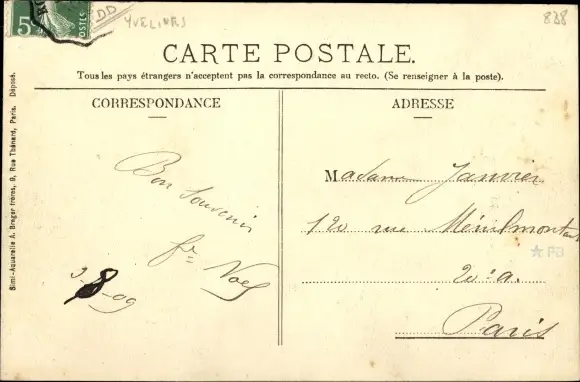 5c
POSTES
DD
YVELINES
838
CARTE POSTALE.
Tous les pays étrangers n'acceptent pas la correspondance au recto. (Se renseigner à la poste).
CORRESPONDANCE
Bon Souvenir
Noël
8-09
ADRESSE
Madame Janvier
120 rue Ménilmontant
20e a.
Paris
PB
Simi-Aquarelle A. Breger frères, 9, Rue Thénard, Paris. Déposé.